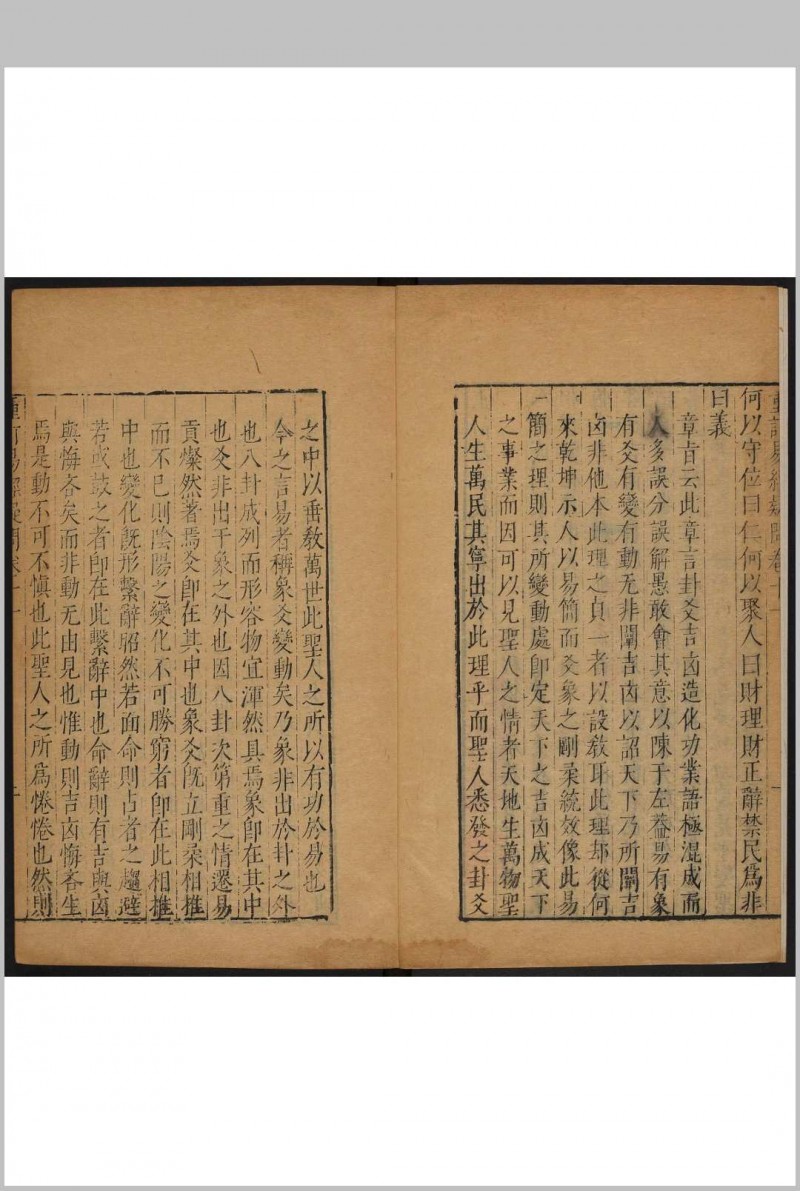 重訂易經疑問卷十一
何以守位曰仁何以聚人曰財理財正辭禁民爲非
曰義
章旨云此章言卦爻吉凶造化功業語極混成而
人多誤分誤解愚敢會其意以陳于左葢易有象
有爻有變有動无非闡吉凶以詔天下乃所闡吉
凶非他本此理之貞一者以設敎耳此理却從何
來乾坤示人以易簡而爻象之剛柔統效像此易
簡之理則其所變動處卽定天下之吉凶成天下
之事業而因可以見聖人之情者天地生萬物聖
人生萬民其寧出於此理乎而聖人悉發之卦爻
之中以垂敎萬世此聖人之所以有功於易也
今之言易者稱象爻變動矣乃象非出於卦之外
也八卦成列而形容物宜渾然具焉象卽在其中
也爻非出于象之外也因八卦次第重之情遷易
貢燦然著焉爻卽在其中也象爻旣立剛柔相推
而不已則陰陽之變化不可勝窮者卽在此相推
中也變化旣形繫辭昭然若面命則占者之趨避
若或鼓之者卽在此繫辭中也命辭則有吉與凶
與悔吝矣而非動无由見也惟動則吉凶悔吝生
焉是動不可不愼也此聖人之所爲惓惓也然則
重訂易經疑問卷十一